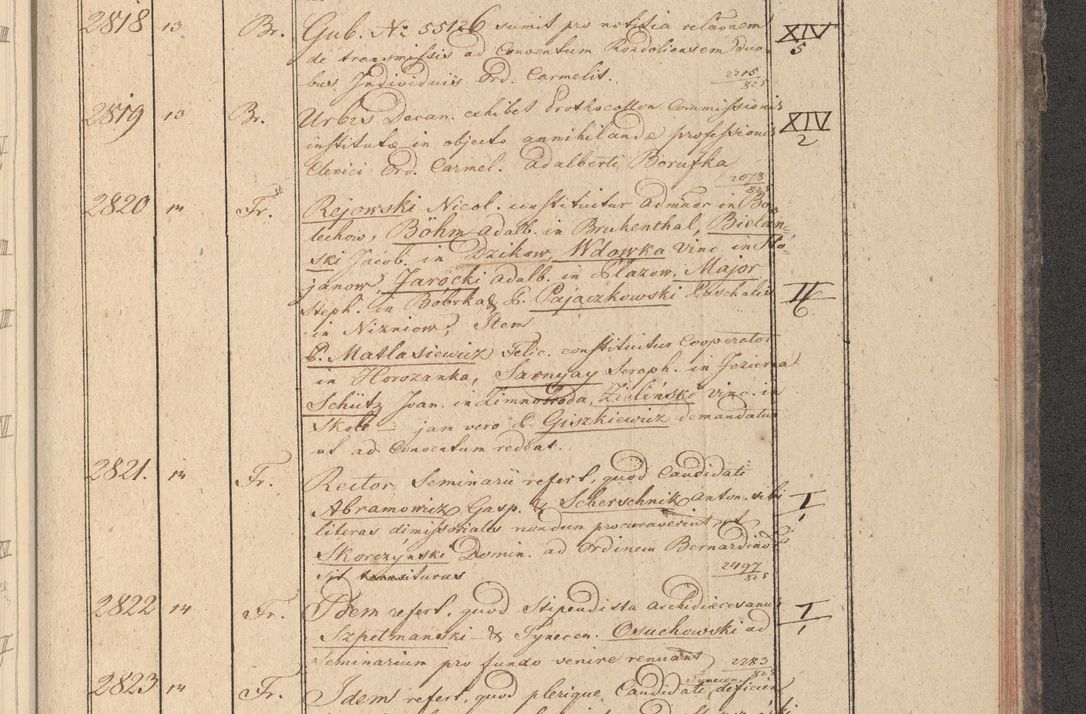 2818 13 Br. Gub. No 55126 sumit pro notitia relaõnem XIV
de transmissis ad Conventum Rozdoliensem duo 5
bus Individuis Ord. Carmelit. 2215/825
2819 13 Br. Urbis Decan. exhibet Prothocollon Commissionis XIV
institutæ in objecto annihilandæ professionis 2
Clerici Ord. Carmel. Adalberti Borufka 2078/825
2820 14 Fr. Rejowski Nicol. constituitur Admnor in Bo
lechow, Böhm Adalb. in Brukenthal, Bielan-
ski Jacob. in Dzikow, Wdowka Vinc. in Sto-
janow, Jarocki Adalb. in Plazow, Major II
Steph. in Bobrka & P. Pajaczkowski Paschalis 6
in Nizniow, Item
P. Matlasiewicz Felic. constituitur Cooperator
in Horozanka, Sarnyay Seraph. in Jezierna
Schütz Joan. in Zimnowoda, Zieliński Vinc. in
Skole - jam vero P. Giszkiewicz demandatur
ut ad Conventum redeat.
2821. 14 Fr. Rector Seminarii refert, quod Candidati
Abramowicz Gasp. & Scherschnik Anton. sibi I
literas dimissoriales nondum procuraverint et 1
Skorczynski Domin. ad Ordinem Bernardino
sit transiturus 2497/825
2822 14 Fr. Idem refert, quod Stipendista Archidiæcesanus I
Szpetmanski & Tynecen. Osuchowski ad 1
Seminarium pro fundo venire renuant 2283/825
2823 14 Fr. Idem refert, quod plerique Candidati deficien